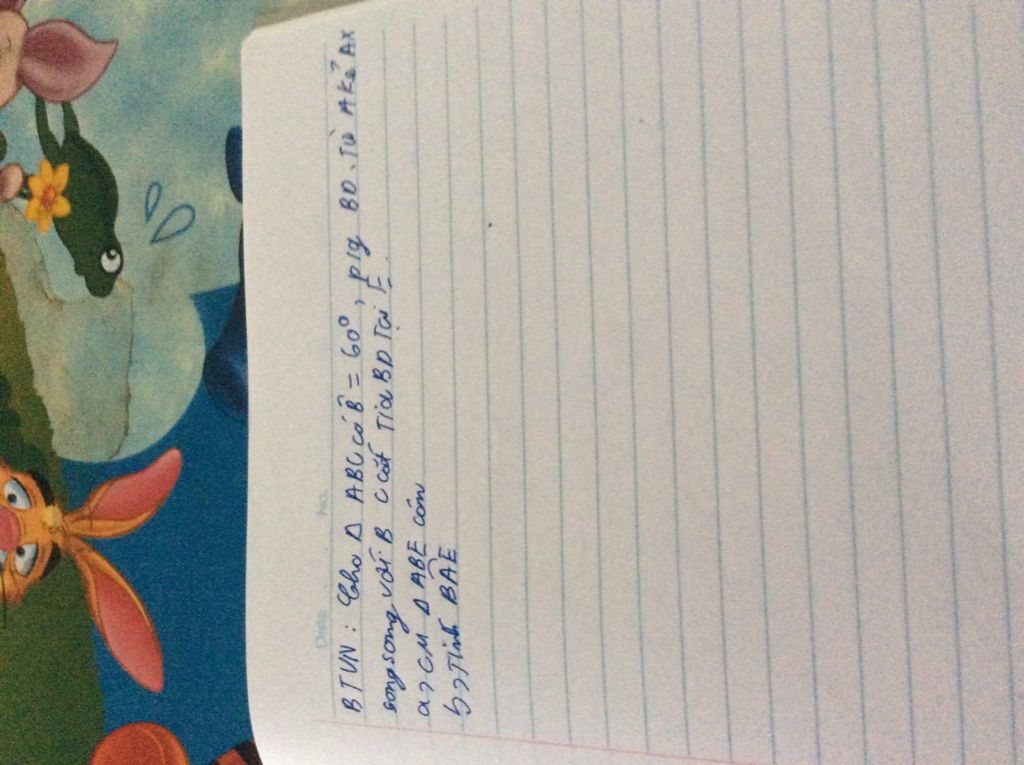 Date No.
BTVN : Cho Δ ABC có B̂ = 60°, p/g BD. Từ A kẻ Ax
song song với BC cắt Tia BD Tại E.
a> CM Δ ABE cân
b> Tính BÂE